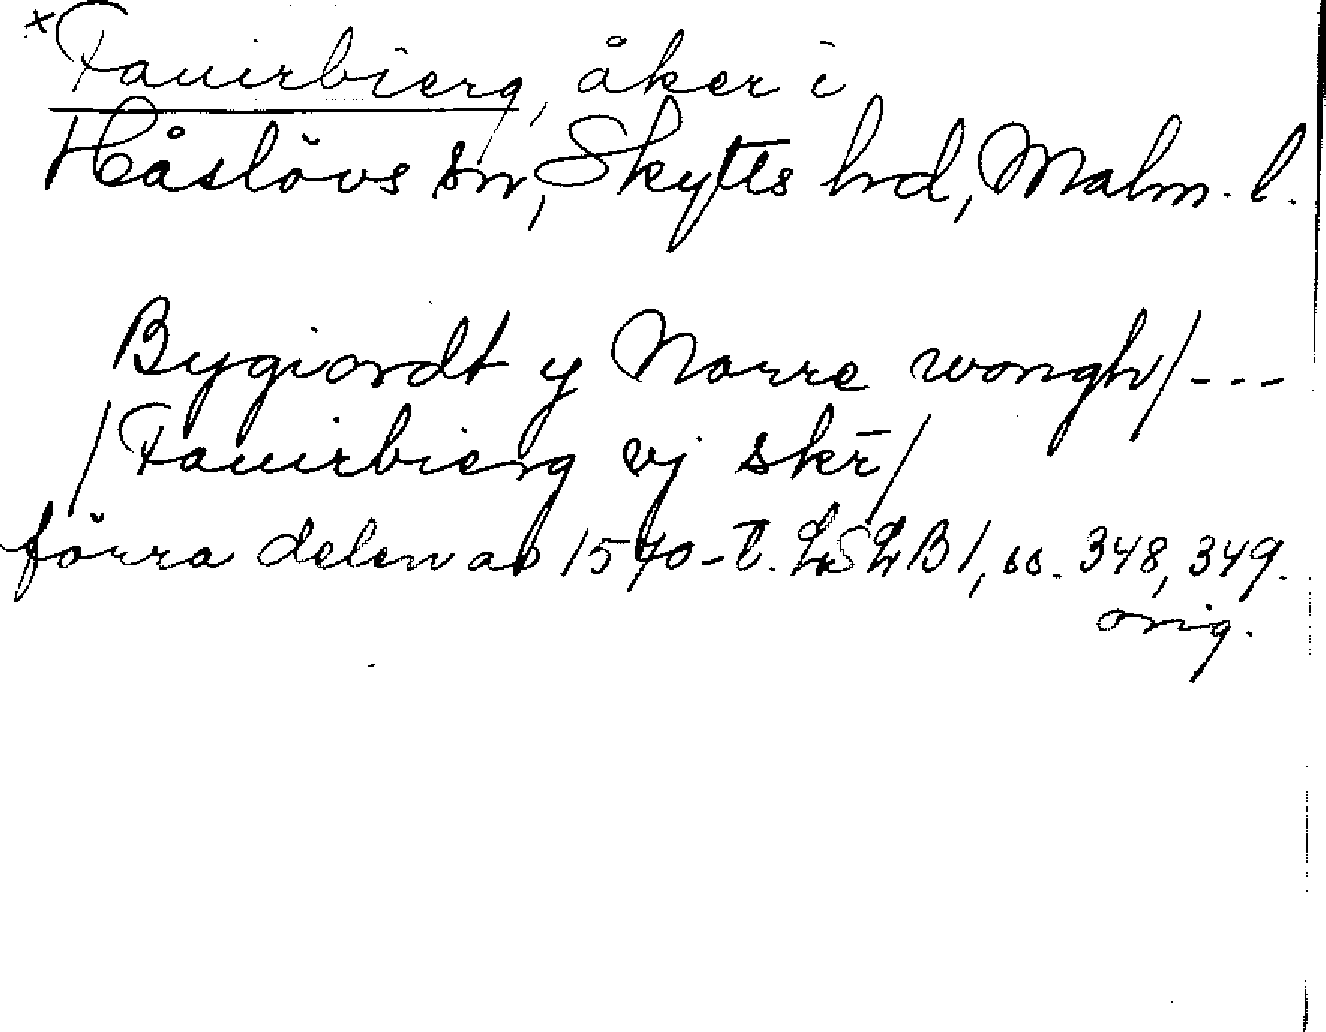 x Fauirbierg, åker i
Håslövs sn, Skytts hd, Malm. l.
Bygiordt y Norre wongh/---
/Fauirbierg vj skr̄/
förra delen av 1570-t. LSLB1, ss. 348, 349.
orig.